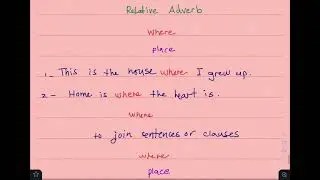 Relative Adverb
where
place
1_ This is the house where I grew up.
2- Home is where the heart is.
where
to join sentences or clauses
where
place